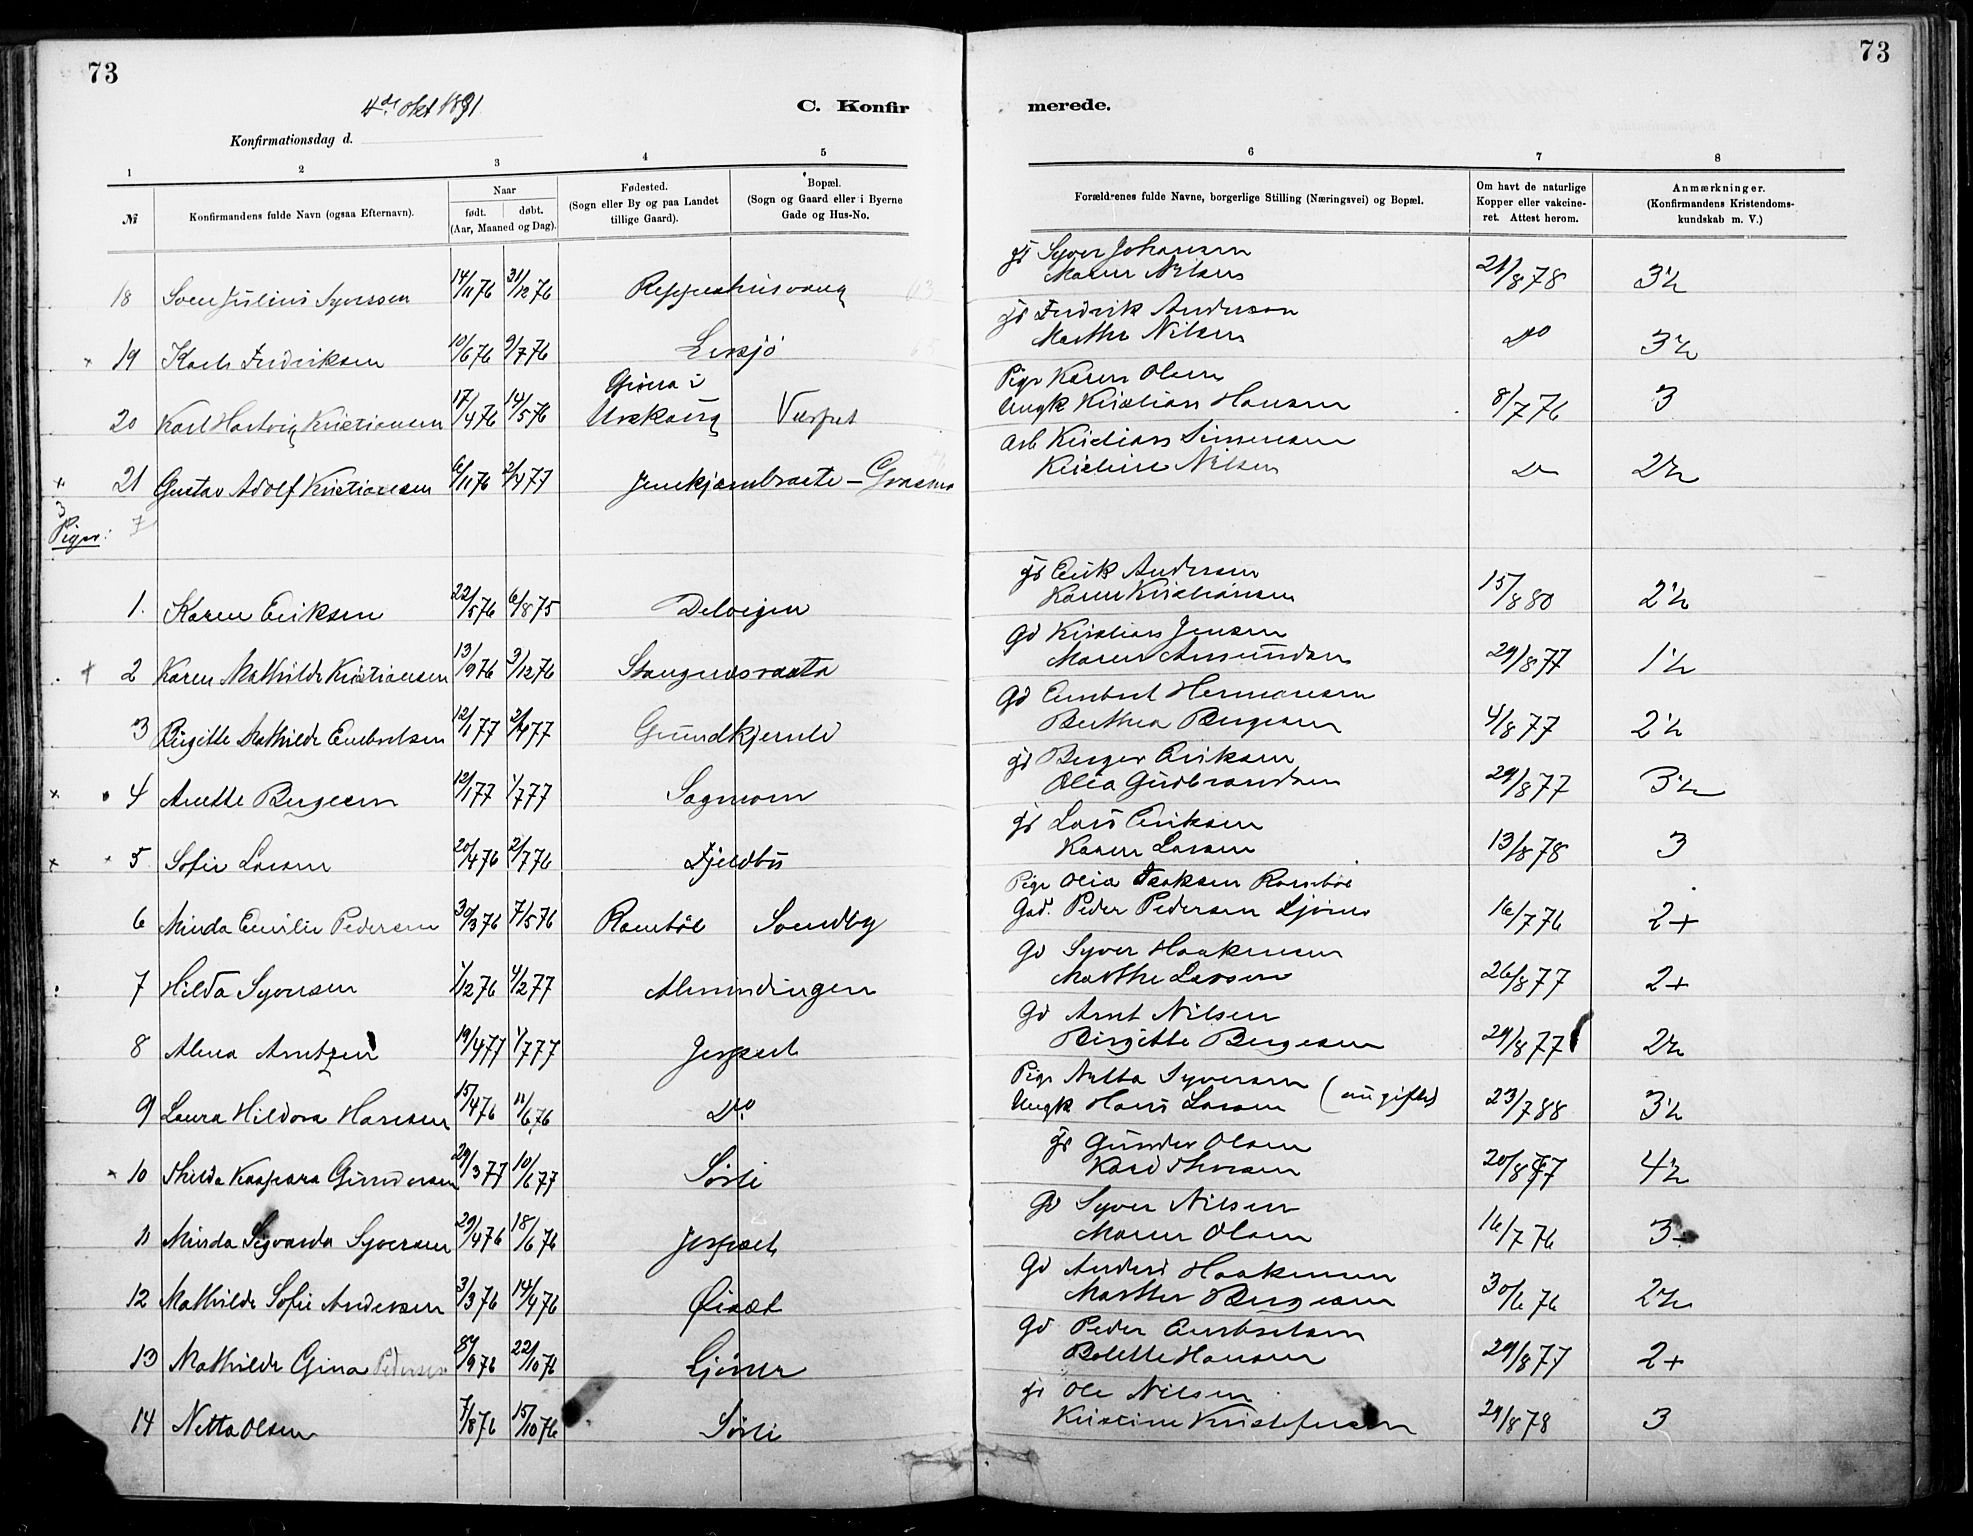 73
4de Okt 1891
C. Konfir
Konfirmationsdag d.
1 2 3 4 5
№ Konfirmandens fulde Navn (ogsaa Efternavn). Naar født. døbt. (Aar, Maaned og Dag). Fødested. (Sogn eller By og paa Landet tillige Gaard). Bopæl. (Sogn og Gaard eller i Byerne Gade og Hus-No.
18 Sven Julius Syversen 14/11 76 31/12 76
19 Karl Fredriksen 10/6 76 9/7 76
20 Karl Hartvig Kristiansen 17/4 76 14/5 76 i Urskoug
21 Gustav Adolf Kristiansen 6/11 76 2/4 77
Piger:
1. Karen Eriksen 22/5 76 6/8 75
2 Karen Mathilde Kristiansen 13/9 76 3/12 76
3 Birgitte Mathilde Embretsen 12/1 77 2/4 77 Grundkjernli
4 Anette Bergesen 12/1 77 1/7 77 Sagmoen
5 Sofie Larsen 20/4 76 2/7 76 Fjeldbu
6 Minda Emilie Pedersen 30/3 76 7/5 76 Rambøl Sundby
7 Hilda Syversen 1/12 76 4/2 77 Almindingen
8 Alma Arntzen 19/4 77 1/7 77 Jerpset
9 Laura Hildora Hansen 15/4 76 11/6 76 Do
10 Thilda Kaspara Gundersen 29/3 77 10/6 77 Sørli
11 Minda Sigvarda Syversen 29/4 76 18/6 76 Jerpset
12 Mathilde Sofie Andersen 3/3 76 14/4 76 Øiset
13 Mathilde Gina Pedersen 8/9 76 22/10 76 Ljøner
14 Netta Olsen 7/8 76 15/10 76 Sørli
73
merede.
6 7 8
Forældrenes fulde Navne, borgerlige Stilling (Næringsvei) og Bopæl. Om havt de naturlige Kopper eller vakcineret. Attest herom. Anmærkninger. (Konfirmandens Kristendomskundskab m. V.)
Syver Johansen
Maren Nilsen 21/8 78
Fredrik Andersen
Marthe Nilsen Do
Pige Karen Olsen
Ungk Kristian Hansen 8/7 76 3
Arb Kristian Simensen
Kristine Nilsen
Erik Andersen
Karen Kristiansen 15/8 80
Gd Kristian Jensen
Maren Amundsen 29/8 77
Gd Embret Hermansen
Berthea Bergesen 4/8 77
Berger Eriksen
Olea Gudbrandsen 29/8 77
Lars Eriksen
Karen Larsen 13/8 78 3
Pige Olea Isaksen Rambøl
Gad. Peder Pedersen Ljøner 16/7 76 2+
Gd Syver Haakensen
Marthe Larsen 26/8 77 2+
Gd Arnt Nilsen
Birgitte Bergesen 29/8 77
Pige Netta Syversen
Ungk Hans Larsen (nu gifte) 23/7 88
Gunder Olsen
Kari Thoresen 20/8 77
Gd Syver Nilsen
Maren Olsen 16/7 76 3
Gd Anders Haakensen
Marthe Bergesen 30/6 76
Gd Peder Embretsen
Bolette Hansen 29/8 77 2+
Ole Nilsen
Kristine Kristofersen 29/8 78 3